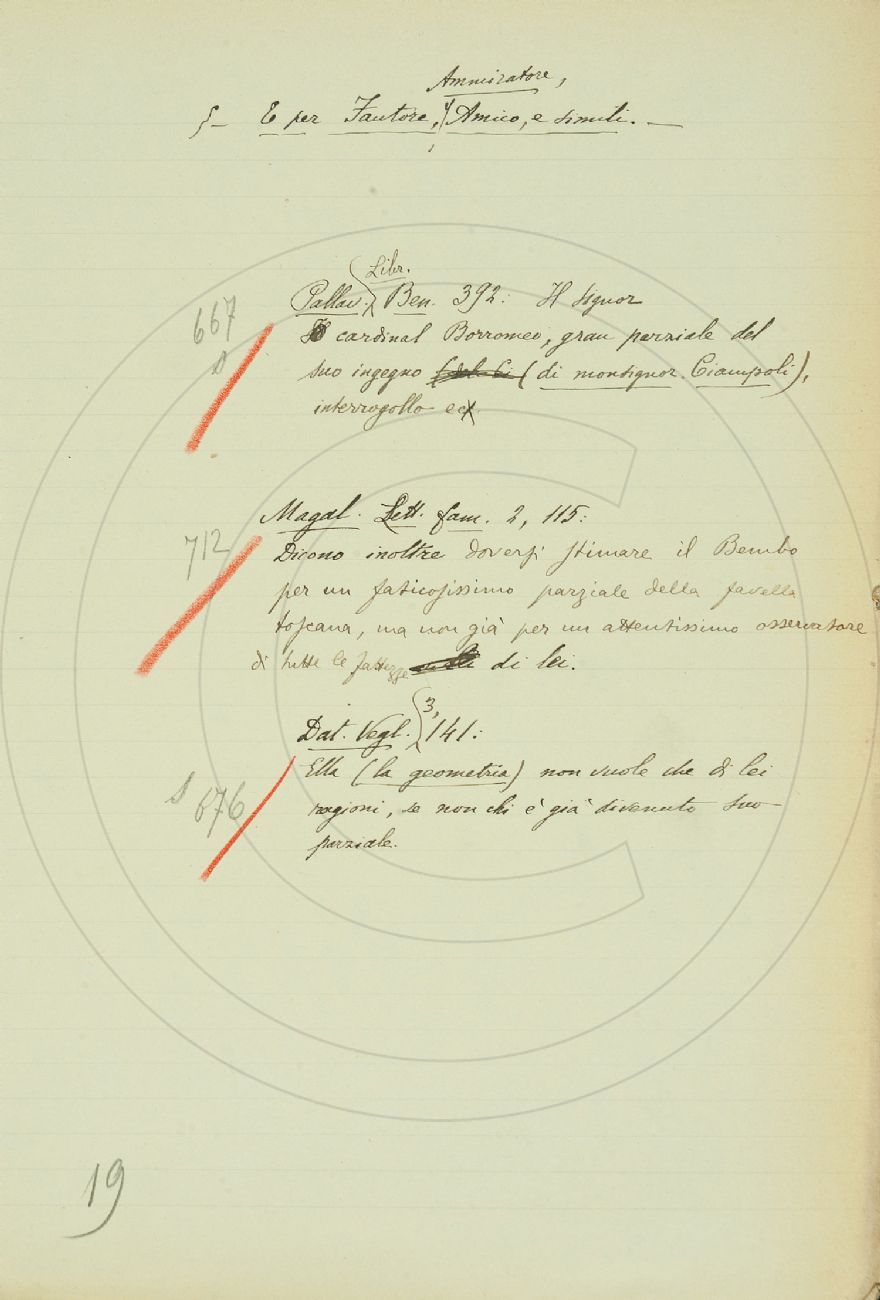 Ammiratore,
§ — E per Fautore, Amico, e simili. —
Libr.
667 Pallav. Ben. 392: Il signor
cardinal Borromeo, gran parziale del
suo ingegno (di monsignor Ciampoli),
interrogollo ec.
Magal. Lett. fam. 2, 115:
712 Dicono inoltre doversi stimare il Bembo
per un faticosissimo parziale della favella
toscana, ma non già per un attentissimo osservatore
di tutte le fattezze di lei.
3,
Dat. Vegl. 141:
Ella (la geometria) non vuole che di lei
676 ragioni, se non chi è già divenuto suo
parziale.
19